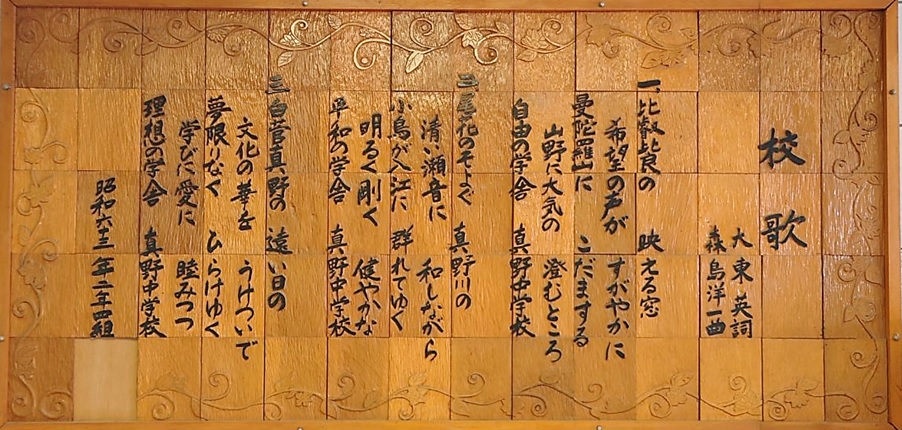 校歌
大東英詞
森島洋一曲
一、比叡比良の 映える窓
希望の声が すがやかに
曼陀羅山に こだまする
山野に大気の 澄むところ
自由の学舎 真野中学校
二、尾花のそよぐ 真野川の
清い瀬音に 和しながら
小鳥が入江に 群れてゆく
明るく剛く 健やかな
平和の学舎 真野中学校
三、白菅真野の 遠い日の
文化の華を うけついで
夢限りなく ひらけゆく
学びに愛に 睦みつつ
理想の学舎 真野中学校
昭和六十三年二年四組